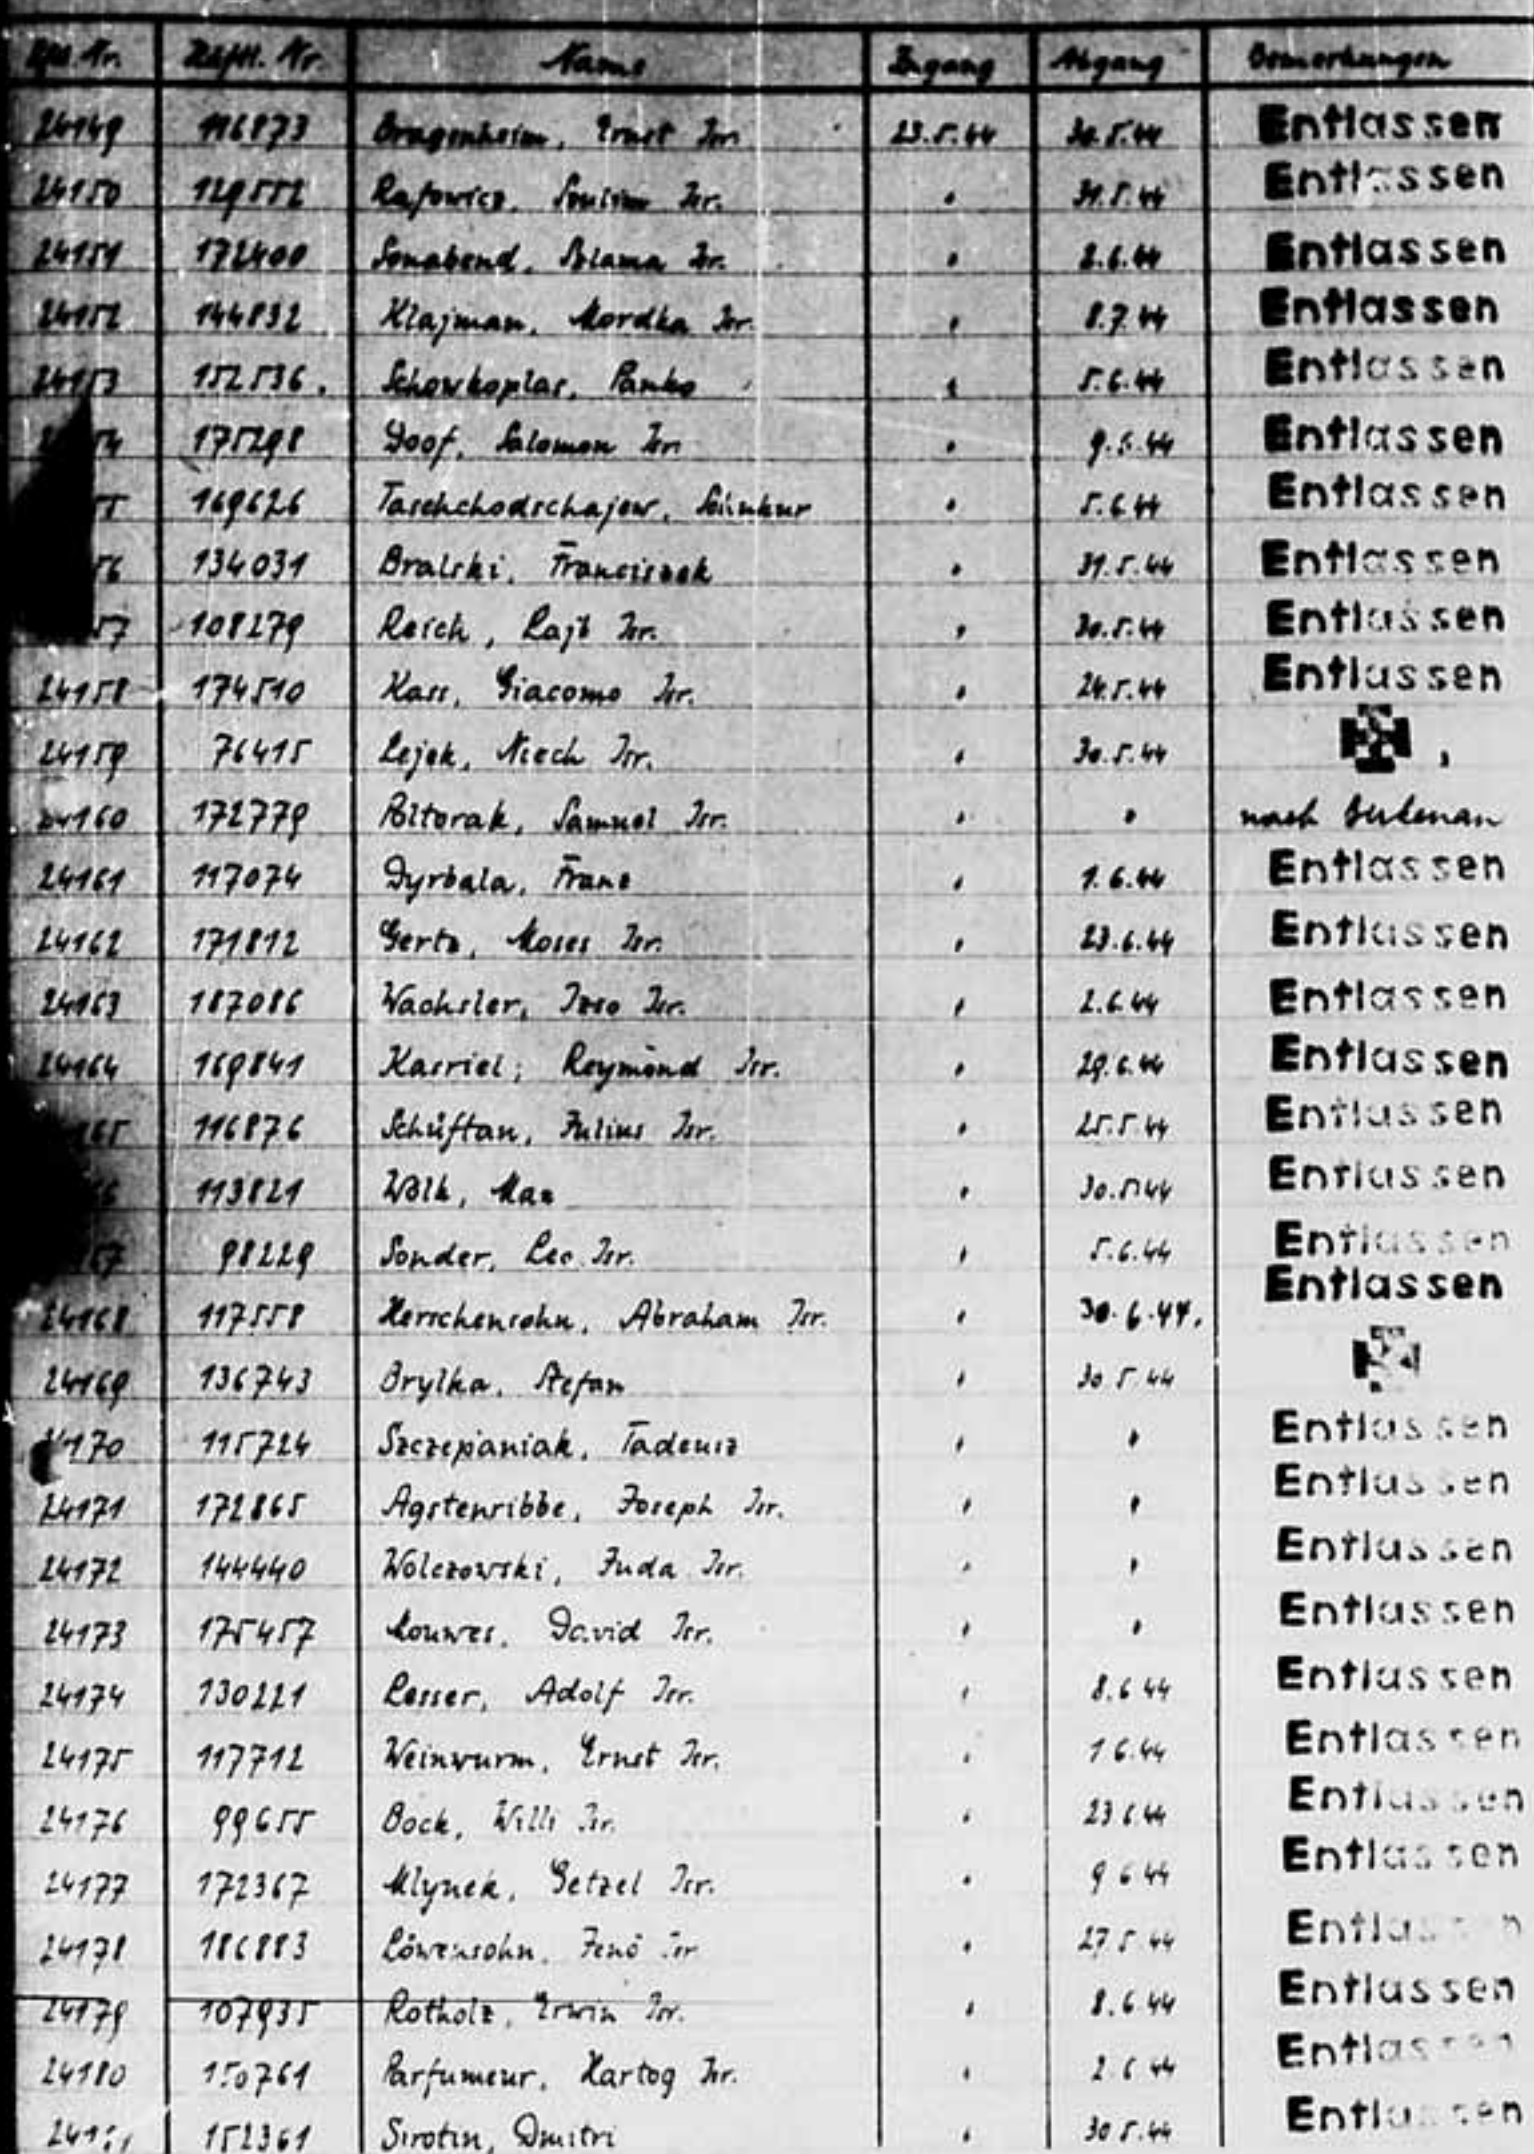 Lfd. Nr. Häftl. Nr. Name Zugang Abgang Bemerkungen
24149 116873 Bragenheim, Ernst Isr. 23.5.44 30.5.44 Entlassen
24150 129552 Rafowicz, Isr. " 31.5.44 Entlassen
24151 172400 Sonabend, Szlama Isr. " 2.6.44 Entlassen
24152 144832 Klajman, Mordka Isr. " 8.7.44 Entlassen
24153 152536. Schowkoplas, Panko " 5.6.44 Entlassen
54 175298 Doof, Salomon Isr. " 9.6.44 Entlassen
55 169626 Taschchodschajew, " 5.6.44 Entlassen
56 134031 Bralski, Franciszek " 31.5.44 Entlassen
57 108279 Reich, Lajb Isr. " 30.5.44 Entlassen
24158 174510 Kass, Giacomo Isr. " 24.5.44 Entlassen
24159 76415 Lejek, Isr. " 30.5.44
24160 172779 Poltorak, Samuel Isr. " " nach Birkenau
24161 117074 Dyrbala, Franz " 1.6.44 Entlassen
24162 171812 Gertz, Moses Isr. " 23.6.44 Entlassen
24163 187086 Wachsler, Izso Isr. " 2.6.44 Entlassen
24164 169841 Kasriel, Reymond Isr. " 29.6.44 Entlassen
65 116876 Schüftan, Julius Isr. " 25.5.44 Entlassen
66 113821 Wolk, Max " 30.5.44 Entlassen
67 98229 Sonder, Leo Isr. " 5.6.44 Entlassen
24168 117558 Herrchensohn, Abraham Isr. " 30.6.44. Entlassen
24169 136743 Brylka, Stefan " 30 5.44
24170 115724 Szczepaniak, Tadeusz " " Entlassen
24171 172865 Agstenribbe, Joseph Isr. " " Entlassen
24172 144440 Wolczowski, Juda Isr. " " Entlassen
24173 175457 Mouwes, David Isr. " " Entlassen
24174 130221 Lesser, Adolf Isr. " 8.6 44 Entlassen
24175 117712 Weinwurm, Ernst Isr. " 1 6.44 Entlassen
24176 99655 Bock, Willi Isr. " 23 6 44 Entlassen
24177 172367 Mlynek, Getzel Isr. " 9 6 44 Entlassen
24178 186883 Löwensohn, Jenö Isr " 27 5.44 Entlassen
24179 107935 Rotholz, Erwin Isr. " 8.6.44 Entlassen
24180 150761 Parfumeur, Hartog Isr. " 2.6 44 Entlassen
152361 Sirotin, Dmitri " 30 5.44 Entlassen